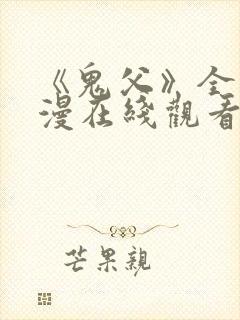 《鬼父》全
漫在綫觀看
芒果親